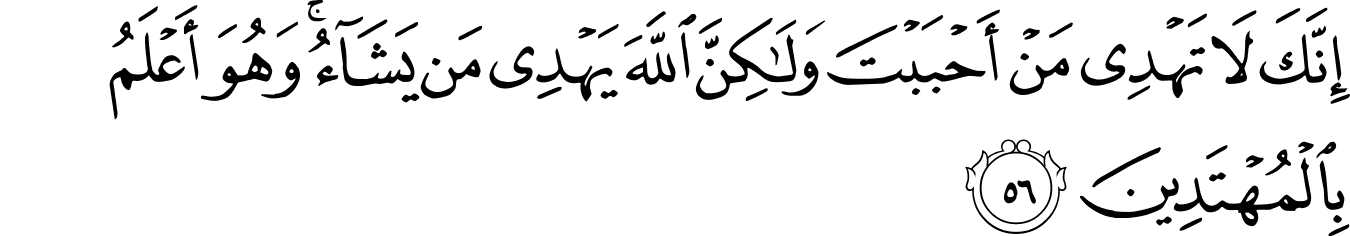 إِنَّكَ لَا تَهْدِى مَنْ أَحْبَبْتَ وَلَـٰكِنَّ ٱللَّهَ يَهْدِى مَن يَشَآءُ ۚ وَهُوَ أَعْلَمُ
بِٱلْمُهْتَدِينَ ٥٦